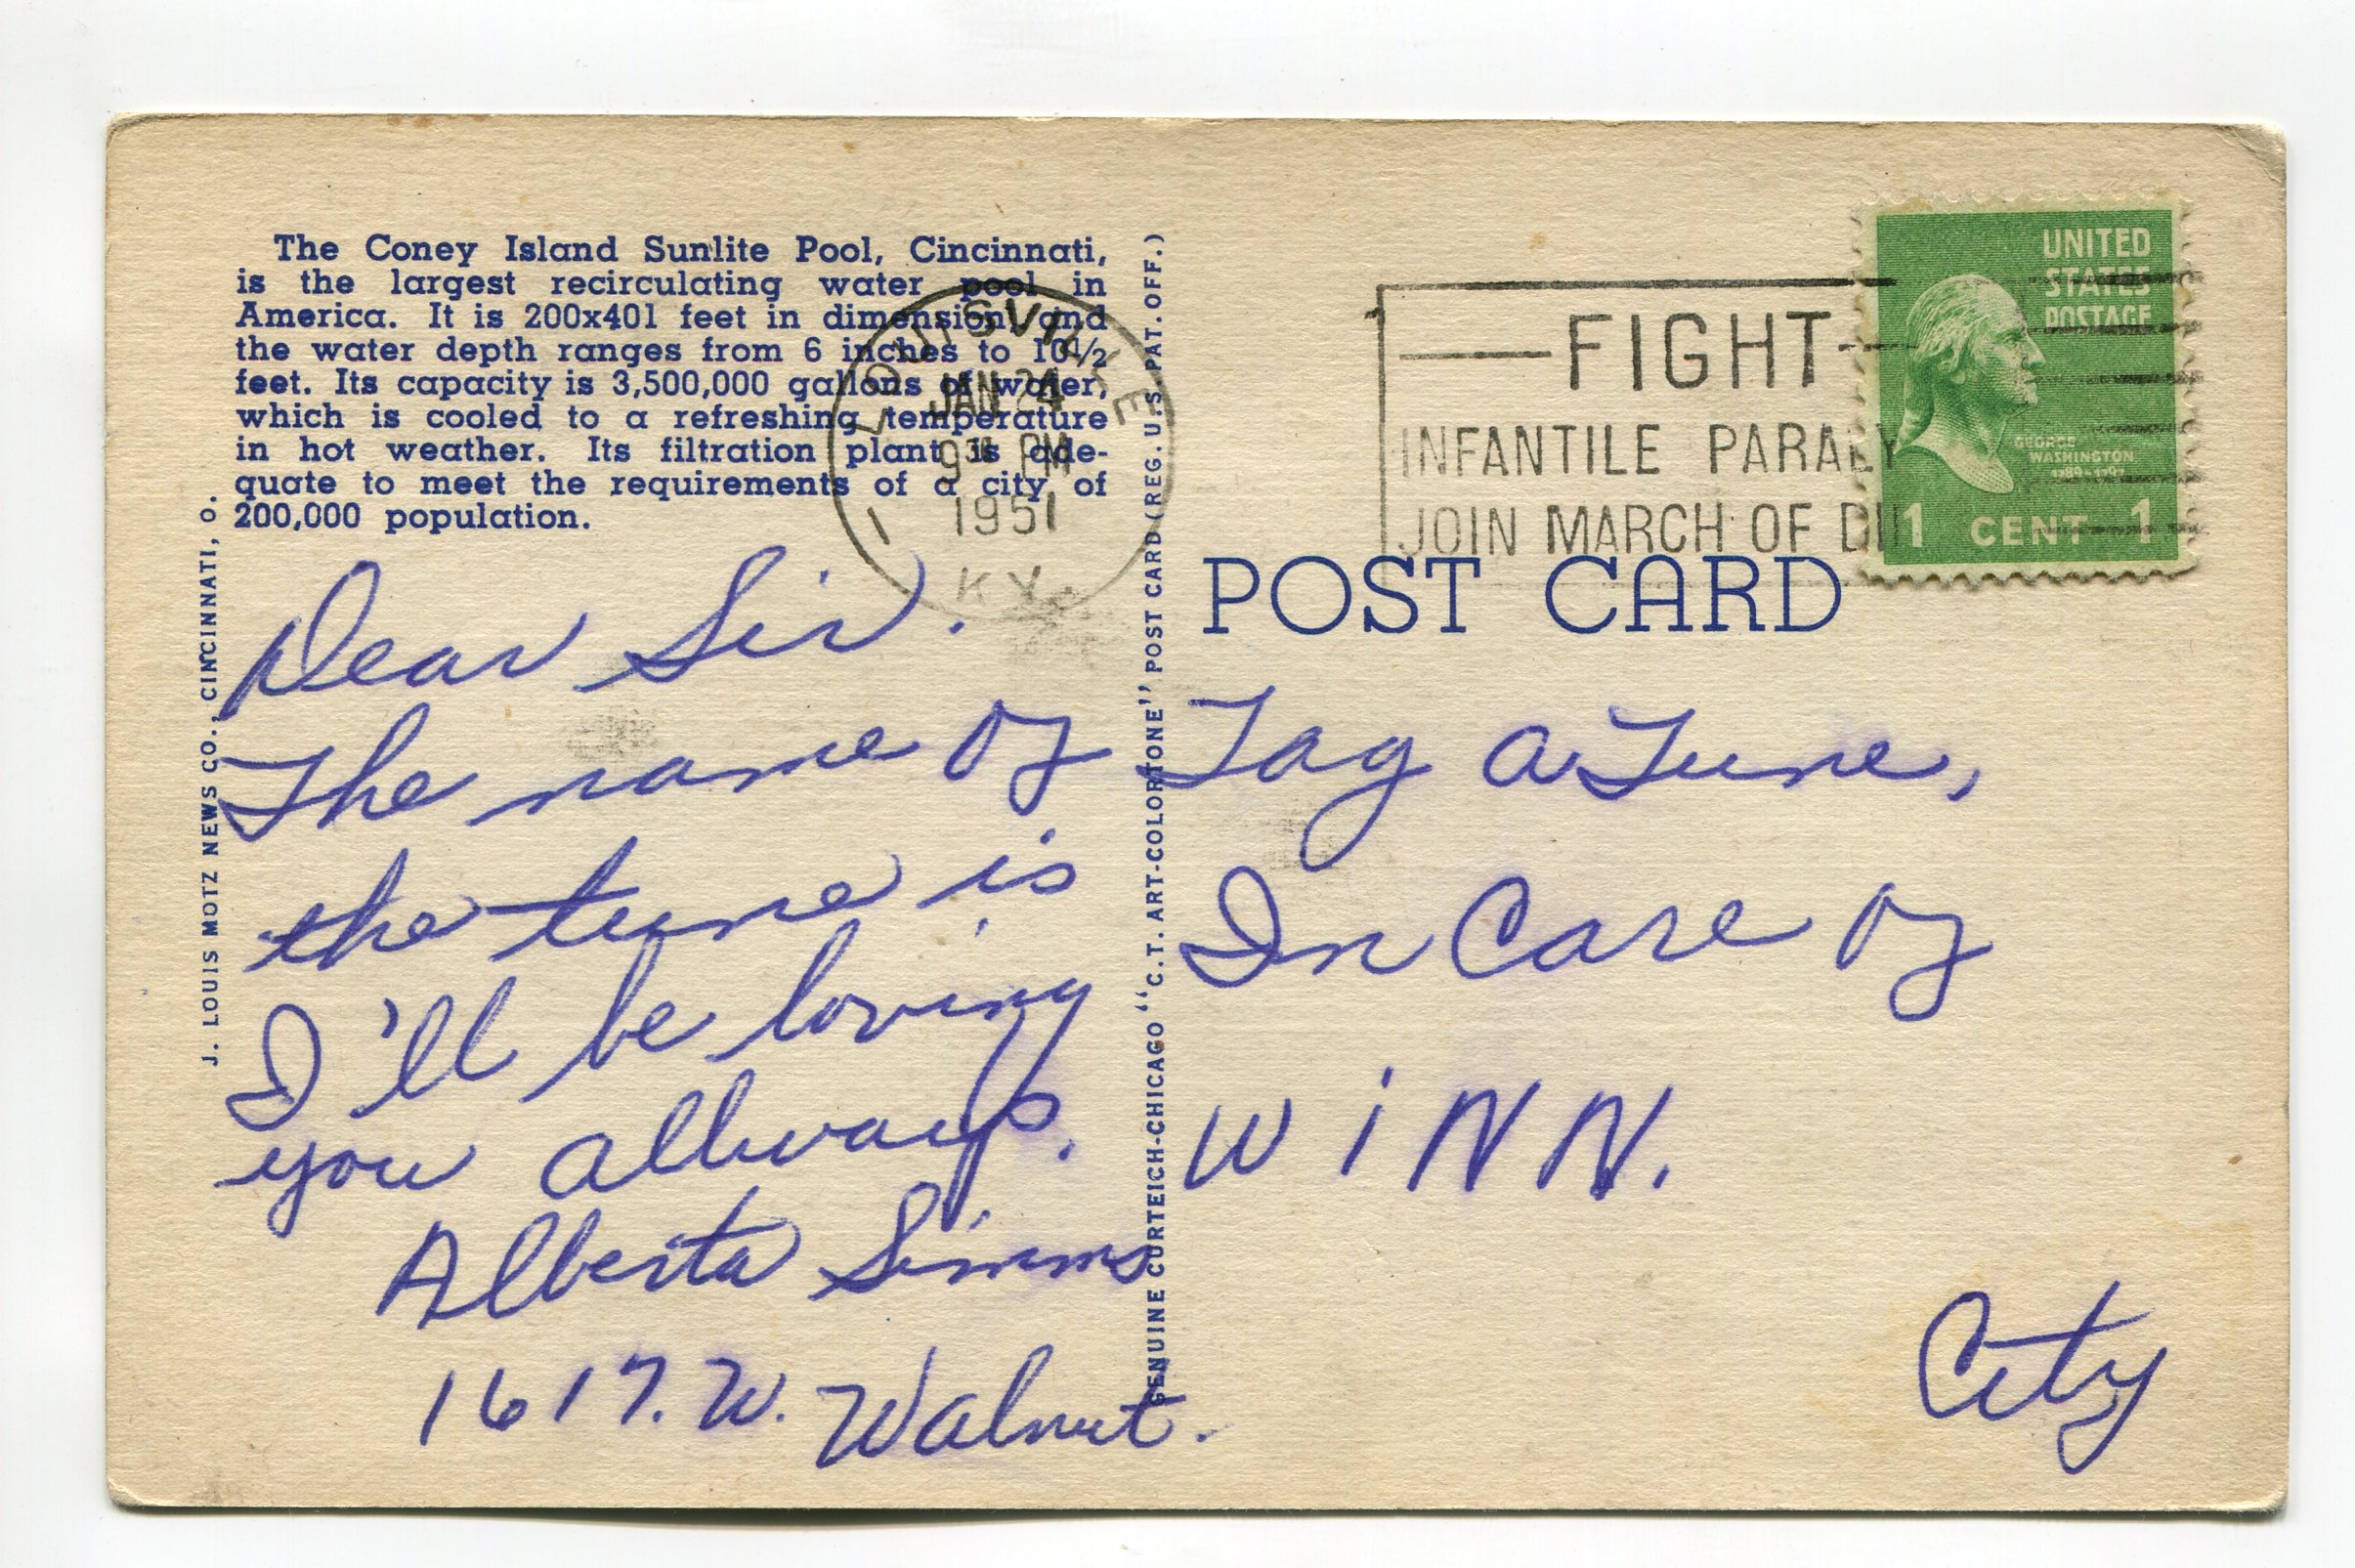 The Coney Island Sunlite Pool, Cincinnati,
is the largest recirculating water pool in
America. It is 200x401 feet in dimension, and
the water depth ranges from 6 inches to 10½
feet. Its capacity is 3,500,000 gallons of water,
which is cooled to a refreshing temperature
in hot weather. Its filtration plant is ade-
quate to meet the requirements of a city of
200,000 population.
J. LOUIS MOTZ NEWS CO., CINCINNATI, O.
Dear Sir.
The name of
the tune is
I'll be loving
you allways.
Alberta Simms
1617. W. Walnut.
GENUINE CURTEICH-CHICAGO "C.T. ART-COLORTONE" POST CARD (REG. U.S. PAT. OFF.)
LOUISVILLE
JAN 24
9 PM
1951
KY.
1
FIGHT
INFANTILE PARALY
JOIN MARCH OF DI
UNITED
STATES
POSTAGE
GEORGE
WASHINGTON
1789-1797
1 CENT 1
POST CARD
Tag A Tune,
In Care of
WiNN.
City